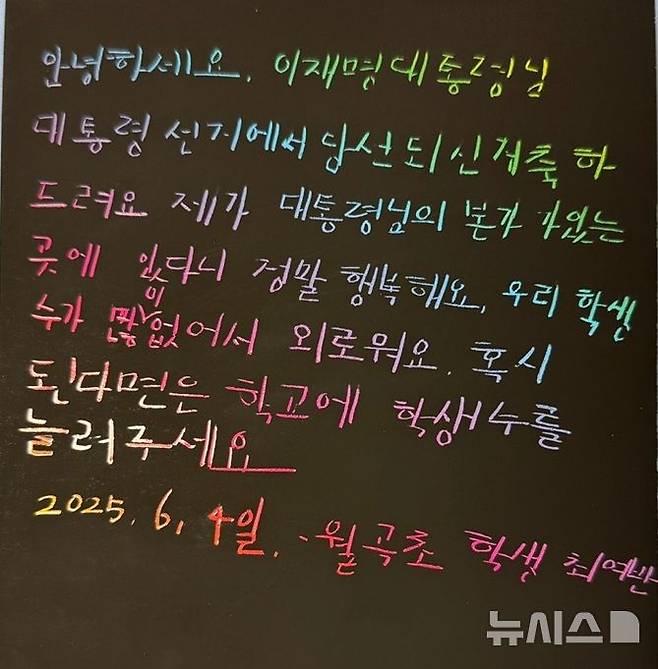 안녕하세요. 이재명대통령님
대통령 선거에서 당선되신거축하
드려요 제가 대통령님의 본가 가있는
곳에 있다니 정말 행복해요. 우리 학생
수가 많이 없어서 외로워요. 혹시
된다면은 학교에 학생수를
늘려주세요
2025. 6. 4일. - 월곡초 학생
뉴시스